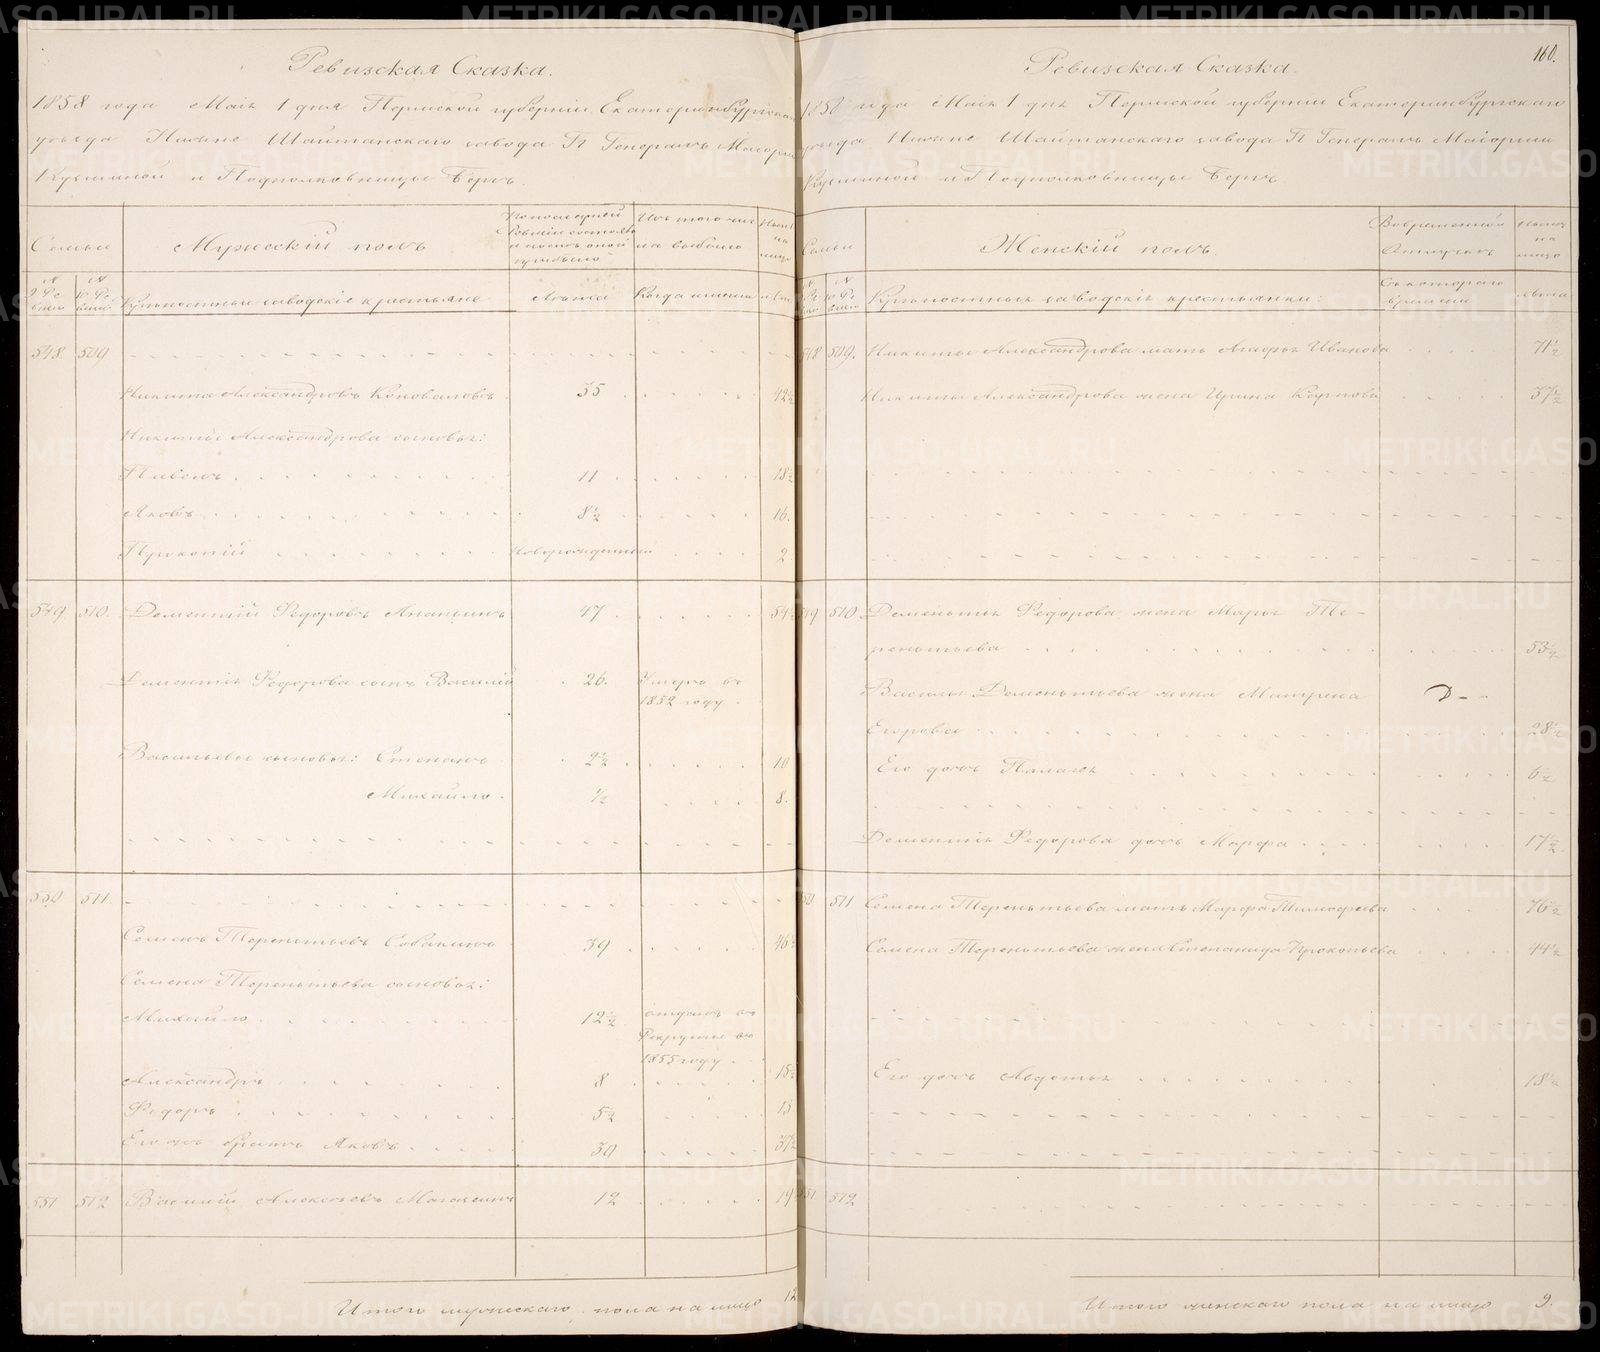 Ревизская Сказка.
1858 года Маія 1 дня Пермской губерніи Екатеринбургскаго
уѣзда Нижне Шайтанскаго завода Гг Генералъ Маіорши
Кузьминой и Подполковницы Бергъ
Семьи
Мужескій полъ
По последней Ревизіи состояло и послѣ оной прибыло
Изъ того числа выбыло
Нынѣ на лицо
№ 9 Ревизіи
№ 10 Ревизіи
Крѣпостные заводскіе крестьяне
Лѣта
Когда именно
Лѣта
548 509
Никита Александровъ Коноваловъ 35 42½
Никиты Александрова сыновья:
Павелъ 11 18½
Яковъ 8½ 16.
Прокопій Новорожденный 2
549 510. Дементій Федоровъ Ананьинъ 47 54½
Дементія Федорова сынъ Василій 26. Умеръ въ
1852 году
Васильевы сыновья: Степанъ 2½ 10
Михайло ½ 8.
550 511.
Семенъ Терентьевъ Собакинъ 39 46½
Семена Терентьева сыновья:
Михайло 12½ отданъ въ
Рекруты въ
1855 году
Александръ 8 15½
Федоръ 5½ 13
Его жъ братъ Яковъ 30 37½
551 512 Василій Алексѣевъ 12 19
Итого мужескаго пола на лицо 12
160.
Ревизская Сказка.
1858 года Маія 1 дня Пермской губерніи Екатеринбургскаго
уѣзда Нижне Шайтанскаго завода Гг Генералъ Маіорши
Кузьминой и Подполковницы Бергъ
Семьи
Женскій полъ
Во временной Отлучкѣ
Нынѣ на лицо
№ 9 Ревизіи
№ 10 Ревизіи
Крѣпостныя заводскія крестьянки:
Съ котораго времени
Лѣта
548 509. Никиты Александрова мать Агафья Иванова 71½
Никиты Александрова жена Ирина Карпова 37½
549 510 Дементья Федорова жена Марья Те-
рентьева 53½
Василья Дементьева жена Матрена
Егорова 28½
Его дочь Палагея 6½
Дементія Федорова дочь Марфа 17½
550 511 Семена Терентьева мать Марфа Тимофеева 76½
Семена Терентьева жена Степанида Прокопьева 44½
Его дочь Авдотья 18½
551 512
Итого женскаго пола на лицо 9.
METRIKI.GASO-URAL.RU